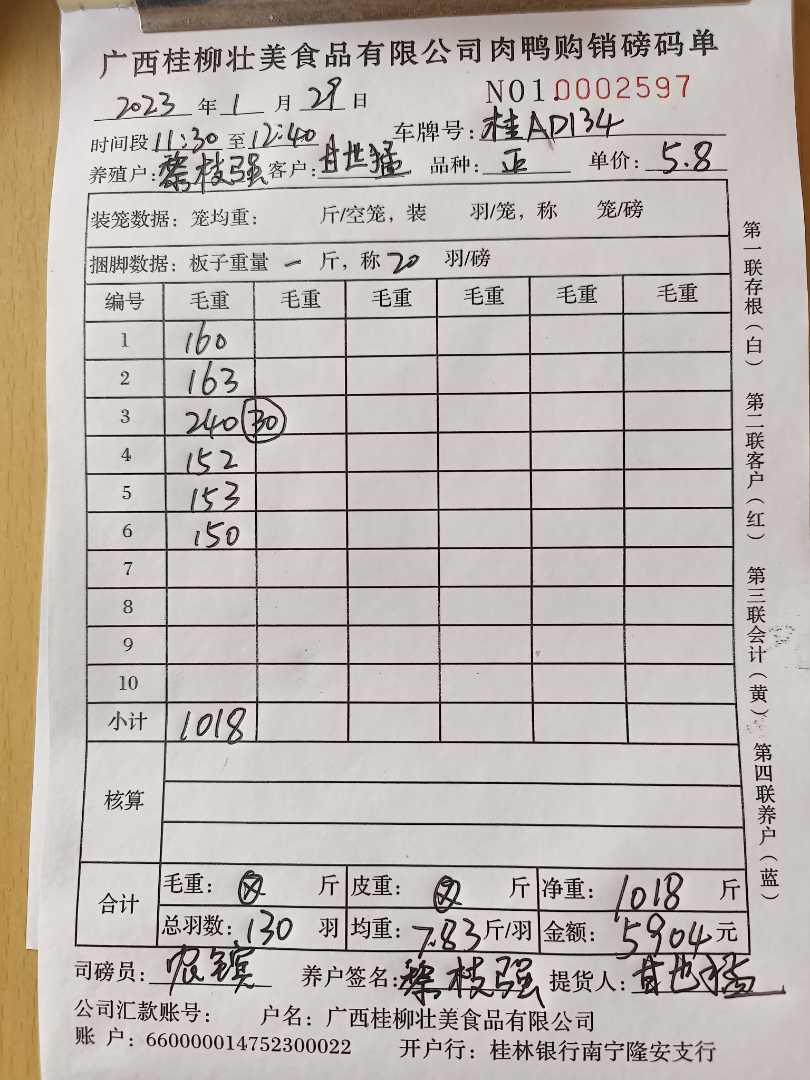 广西桂柳壮美食品有限公司肉鸭购销磅码单
2023 年 1 月 29 日 NO1.0002597
时间段 11:30 至 12:40 车牌号: 桂AD134
养殖户: 黎枝强 客户: 甘世猛 品种: 正 单价: 5.8
装笼数据: 笼均重: 斤/空笼, 装 羽/笼, 称 笼/磅
捆脚数据: 板子重量 一 斤, 称 20 羽/磅
编号 毛重 毛重 毛重 毛重 毛重 毛重
1 160
2 163
3 240 30
4 152
5 153
6 150
7
8
9
10
小计 1018
核算
合计 毛重: 斤 皮重: 斤 净重: 1018 斤
总羽数: 130 羽 均重: 7.83 斤/羽 金额: 5904 元
司磅员: 养户签名: 黎枝强 提货人: 甘世猛
公司汇款账号: 户名: 广西桂柳壮美食品有限公司
账 户: 660000014752300022 开户行: 桂林银行南宁隆安支行
第一联存根(白) 第二联客户(红) 第三联会计(黄) 第四联养户(蓝)